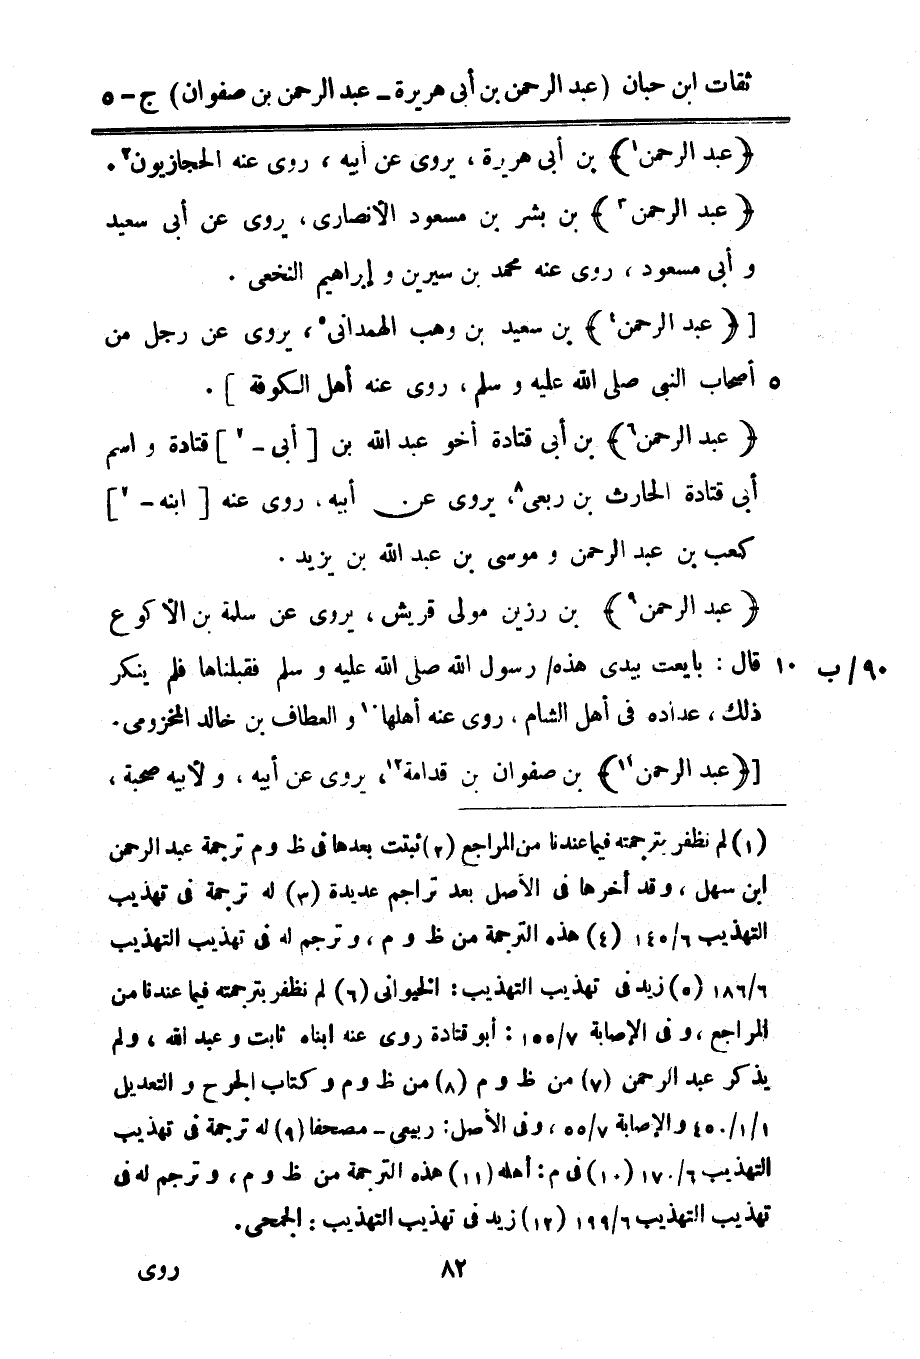 ثقات ابن حبان (عبد الرحمن بن أبى هريرة ـ عبد الرحمن بن صفوان) ج – ٥
﴿عبد الرحمن١﴾ بن أبى هريرة ، يروى عن أبيه ، روى عنه الحجازيون٢ .
﴿عبد الرحمن٣﴾ بن بشر بن مسعود الأنصارى، يروى عن أبى سعيد
و أبى مسعود ، روى عنه محمد بن سيرين و إبراهيم النخعى .
[﴿عبد الرحمن٤﴾ بن سعيد بن وهب الهمدانى٥، يروى عن رجل من
٥ أصحاب النبى صلى الله عليه و سلم ، روى عنه أهل الكوفة ] .
﴿عبد الرحمن٦﴾ بن أبى قتادة أخو عبد الله بن [ أبى – ٧ ] قتادة و اسم
أبى قتادة الحارث بن ربعى٨، يروى عن أبيه، روى عنه [ ابنه – ٧ ]
كعب بن عبد الرحمن و موسى بن عبد الله بن يزيد .
﴿عبد الرحمن٩﴾ بن رزين مولى قريش ، يروى عن سلمة بن الأكوع
٩٠/ ب ١٠ قال : بايعت بيدى هذه/ رسول الله صلى الله عليه و سلم فقبلناها فلم ينكر
ذلك ، عداده فى أهل الشام ، روى عنه أهلها١٠ و العطاف بن خالد المخزومى.
[﴿عبد الرحمن١١﴾ بن صفوان بن قدامة١٢، يروى عن أبيه ، و لأبيه صحبة ،
(١) لم نظفر بترجمته فيما عندنا من المراجع (٢) ثبتت بعدها فى ظ و م ترجمة عبد الرحمن
ابن سهل ، و قد أخرها فى الأصل بعد تراجم عديدة (٣) له ترجمة فى تهذيب
التهذيب ٦/ ١٤٥ (٤) هذه الترجمة من ظ و م ، و ترجم له فى تهذيب التهذيب
٦/ ١٨٦ (٥) زيد فى تهذيب التهذيب : الخيوانى (٦) لم نظفر بترجمته فيما عندنا من
المراجع ، و فى الإصابة ٧/ ١٥٥ : أبو قتادة روى عنه ابناه ثابت و عبد الله ، و لم
يذكر عبد الرحمن (٧) من ظ و م (٨) من ظ و م و كتاب الجرح و التعديل
١/ ١/ ٤٥٠ و الإصابة ٧/ ٥٥ ، و فى الأصل: ربيعى ــ مصحفا (٩) له ترجمة فى تهذيب
التهذيب ٦/ ١٧٠ (١٠) فى م : أهله (١١) هذه الترجمة من ظ و م ، و ترجم له فى
تهذيب التهذيب ٦/ ١٩٩ (١٢) زيد فى تهذيب التهذيب : الجمحى.
٨٢ روى